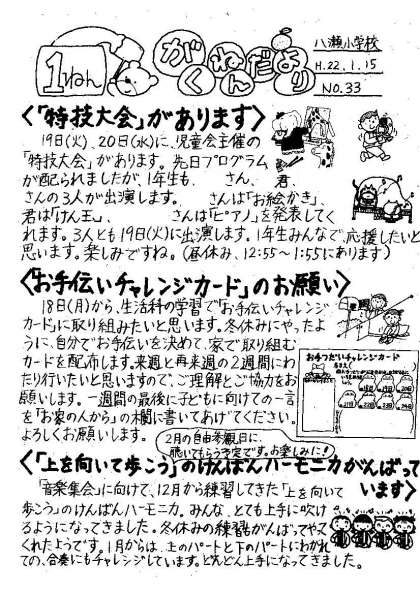 1ねん
がくねんだより
八瀬小学校
H.22.1.15
No.33
〈「特技大会」があります〉
19日(火)、20日(水)に、児童会主催の
「特技大会」があります。先日プログラム
が配られましたが、1年生も、 さん、 君、
さんの3人が出演します。 さんは「お絵かき」、
君は「けん玉」、 さんは「ピアノ」を発表してく
れます。3人とも19日(火)に出演します。1年生みんなで、応援したいと
思います。楽しみですね。(昼休み、12:55～1:55にあります)
〈「お手伝いチャレンジカード」のお願い〉
18日(月)から、生活科の学習で「お手伝いチャレンジ
カード」に取り組みたいと思います。冬休みにやったよ
うに、自分でお手伝いを決めて、家で取り組む
カードを配布します。来週と再来週の2週間にわ
たり行いたいと思いますので、ご理解とご協力をお
願いします。一週間の最後に子どもに向けての一言
を「お家の人から」の欄に書いてあげてください。
よろしくお願いします。
2月の自由参観日に、
聴いてもらう予定です。お楽しみに!
お手つだいチャレンジカード
〈「上を向いて歩こう」のけんばんハーモニカがんばって
います〉
「音楽集会」に向けて、12月から練習してきた「上を向いて
歩こう」のけんばんハーモニカ。みんな、とても上手に吹け
るようになってきました。冬休みの練習もがんばってやって
くれたようです。1月からは、上のパートと下のパートにわかれ
ての、合奏にもチャレンジしています。どんどん上手になってきました。